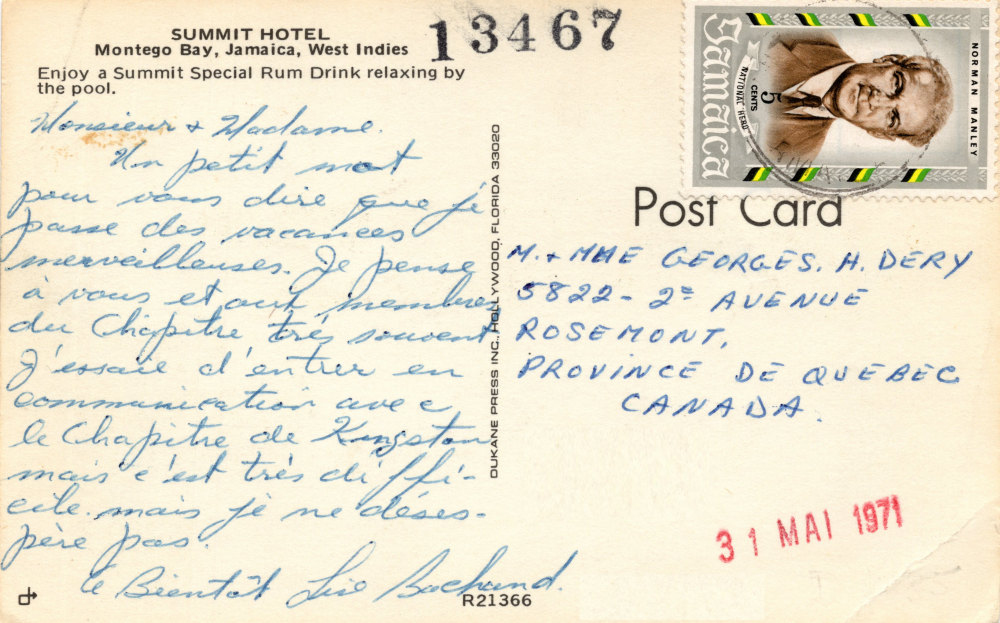 SUMMIT HOTEL
Montego Bay, Jamaica, West Indies
Enjoy a Summit Special Rum Drink relaxing by
the pool.
13467
Monsieur + Madame.
Un petit mot
pour vous dire que je
passe des vacances
merveilleuses. Je pense
à vous et aux membres
du Chapitre très souvent
J'essaie d'entrer en
communication avec
le Chapitre de Kingston
mais c'est très diffi-
cile. mais je ne déses-
père pas.
à Bientôt Lise Bachand.
DUKANE PRESS INC., HOLLYWOOD, FLORIDA 33020
R21366
Jamaica
5
CENTS
NATIONAL HERO
NORMAN MANLEY
Post Card
M. + MME GEORGES. H. DERY
5822 - 2e AVENUE
ROSEMONT,
PROVINCE DE QUEBEC
CANADA.
31 MAI 1971